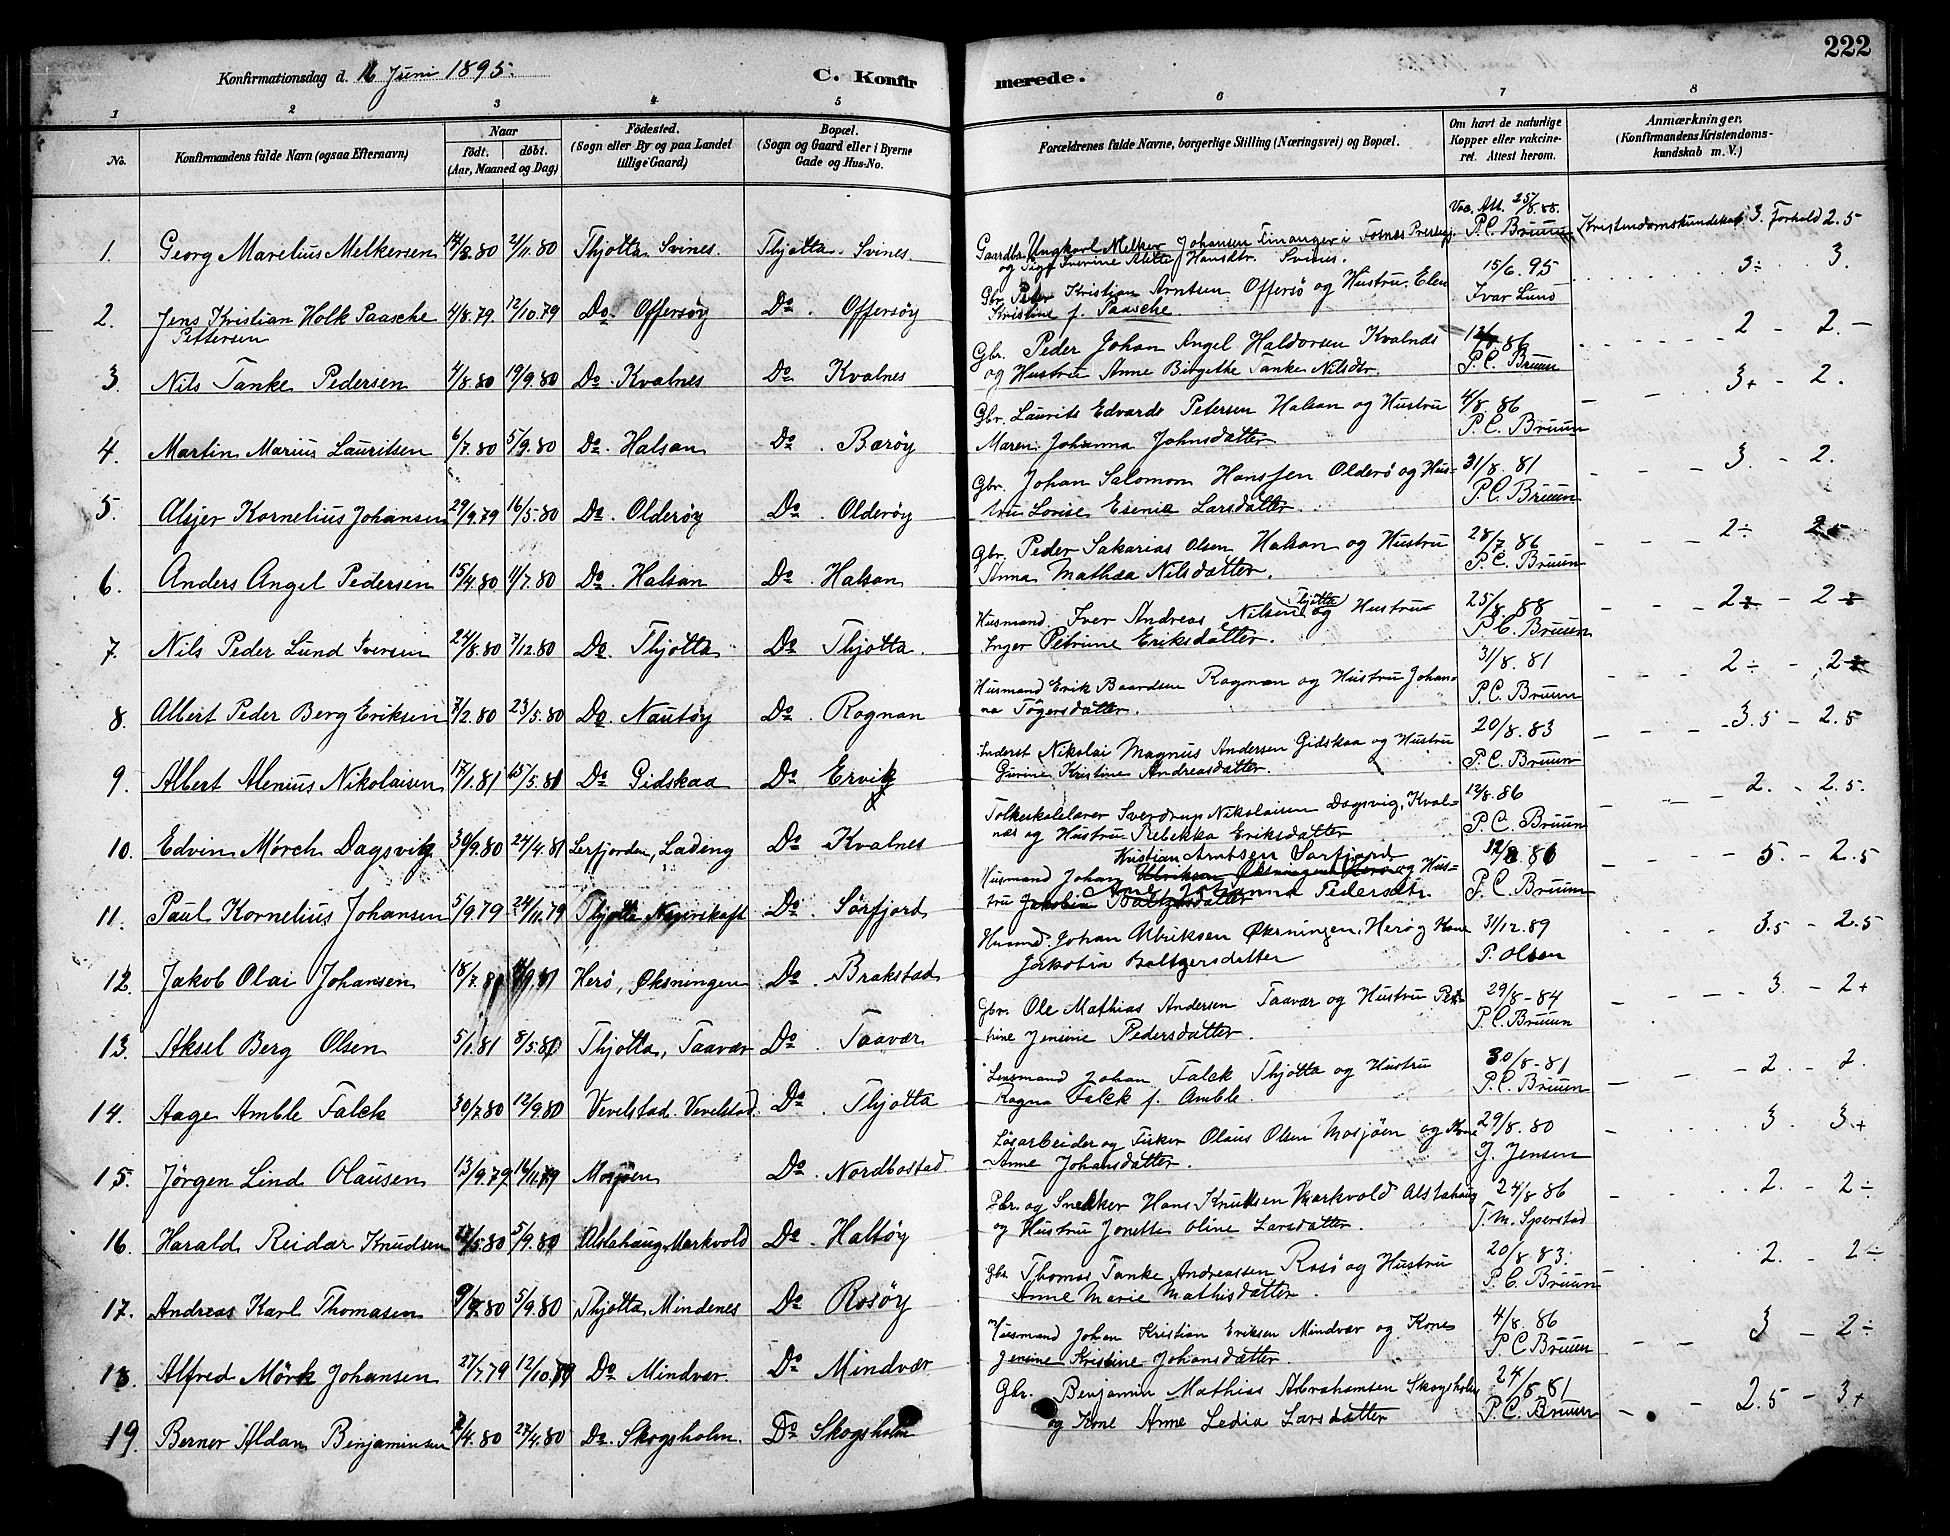 222
Konfirmationsdag d. 16 Juni 1895.
C. Konfirmerede.
1 2 3 4 5 6 7 8
No.
Konfirmandens fulde Navn (ogsaa Efternavn)
Naar
født. døbt.
(Aar, Maaned og Dag)
Fødested.
(Sogn eller By og paa Landet
tillige Gaard)
Bopæl.
(Sogn og Gaard eller i Byerne
Gade og Hus-No.
Forældrenes fulde Navne, borgerlige Stilling (Næringsvei) og Bopæl.
Om havt de naturlige
Kopper eller vakcine-
ret. Attest herom.
Anmærkninger.
(Konfirmandens Kristendoms-
kundskab m. V.)
1. Georg Marelius Melkersen 2/11.80 Thjøtta Svines Thjøtta. Svines.
Ungkarl Melker Johansen Finanger i Fosnes Prestegj.
og Pige Iverine Alette Hansdtr. Svines.
Vac. Att. 25/8.88.
P.C. Bruun
Kristendomskundskab 3. Forhold 2.5
2. Jens Kristian Holk Paasche
Pettersen
4/8.79. 12/10.79 Do Offersøy Do. Offersøy
Gbr. Peter Kristian Arntsen Offersø og Hustru Elen
Kristine f. Paasche.
15/6.95
Ivar Lund
3÷ 3.
3. Nils Tanke Pedersen 4/8.80 19/9.80 Do. Kvalnes Do Kvalnes
Gbr. Peder Johan Angel Haldorsen Kvalnes
og Hustru Anne Birgithe Tanke Nilsdtr.
P.C. Bruun
2 - 2.
4. Martin Marius Lauritsen 6/7.80 5/9.80 Do. Halsan Do. Barøy
Gbr. Laurits Edvards Petersen Halsan og Hustru
Maren Johanna Johnsdatter
4/8.86
P.C. Bruun
3+ - 2.
5. Alsjer Kornelius Johansen 29/9.79 16/5.80 Do. Olderøy Do. Olderøy
Gbr. Johan Salomon Hanssen Olderø og Hus-
tru Lovise Esenie Larsdatter.
31/8.81
P.C. Bruun
3. - 2.
6. Anders Angel Pedersen 15/4.80 11/7.80 Do. Halsan Do. Halsan
Gbr. Peder Sakarias Olsen Halsan og Hustru
Anna Mathea Nilsdatter.
28/7.86
P.C. Bruun
2÷
7. Nils Peder Lund Iversen 24/8.80 7/12.80 Do. Thjøtta Do. Thjøtta.
Husmand Iver Andreas Nilsen Thjøtta og Hustru
Inger Petrine Eriksdatter.
25/8.88
P.C. Bruun
2÷ - 2÷
8. Albert Peder Berg Eriksen 7/2.80 23/5.80 Do. Nautøy Do. Rognan
Husmand Erik Baardsen Rognan og Hustru Johan-
na Tøgersdatter.
31/8.81
P.C. Bruun
2÷ -
9. Albert Alenius Nikolaisen 17/1.81 15/5.81 Do Gidskaa Do Ervik
Inderst Nikolai Magnus Andersen Gidskaa og Hustru
Gurine Kristine Andreasdatter.
20/8.83
P.C. Bruun
3.5 - 2.5
10. Edvin Mørch Dagsvik 30/9.80 24/4.81 Lerfjorden, Lading Do Kvalnes
Folkeskolelærer Sverdrup Nikolaisen Dagsvig, Kval-
nes og Hustru Rebekka Eriksdatter
12/8.86
P.C. Bruun
2. - 2.5.
11. Paul Kornelius Johansen 5/9.79 24/11.79 Thjøtta Do. Sørfjord
Husmand Johan Kristian Arntsen Sørfjord og Hus-
tru Ane Johanna Pedersdtr.
P.C. Bruun
5. - 2.5
12. Jakob Olai Johansen Herø, Øksningen Do. Brakstad
Husmd. Johan Ulriksen Øksningen, Herø og Kone
Jakobia Baltzersdatter
31/12.89
P. Olsen
3.5 - 2.5
13. Aksel Berg Olsen 5/1.81 Thjøtta, Taavær Do. Taavær
Gbr. Ole Mathias Andersen Taavær og Hustru Pet-
rine Jensine Pedersdatter.
29/8-84
P.C. Bruun
3. - 2+
14. Aage Amble Falck 30/7.80 12/9.80 Vevelstad. Vevelstad. Do. Thjøtta
Lensmand Johan Falck Thjøtta og Hustru
Ragna Falck f. Amble.
30/8-81
P.C. Bruun
2. - 2.
15. Jørgen Lind Olausen 13/9.79 16/11.79 Mosjøen Do. Nordbostad
Løsarbeider og Fisker Olaus Olsen Mosjøen og Kone
Anne Johansdatter.
29/8.80
J. Jensen
3. 3.+
16. Harald Reidar Knudsen 5/9.80 Alstahaug, Markvold Do. Haltøy
Gbr. og Snekker Hans Knudsen Markvold Alstahaug
og Hustru Jonette Oline Larsdatter.
24/8.86
T.M. Sperstad
2. - 2÷
17. Andreas Karl Thomasen 5/9.80 Thjøtta Mindenes Do Rosøy
Gbr. Thomas Tanke Andreassen Rosø og Hustru
Anne Marie Mathisdatter.
20/8.83.
P.C. Bruun
2. - 2÷
18. Alfred Mörk Johansen 27/7.79 12/10.79 Do. Mindvær. Do. Mindvær.
Husmand Johan Kristian Eriksen Mindvær og Kone
Jensine Kristine Johansdatter.
4/8.86
P.C Bruun
3 - 2÷
19. Berner Aldan Benjaminsen 27/4.80 Do. Skogsholm. Do Skogsholm
Gbr. Benjamin Mathias Abrahamsen Skogsholm
og Kone Anne Ledia Larsdatter
24/8.81
P.C. Bruun
2.5 - 3+